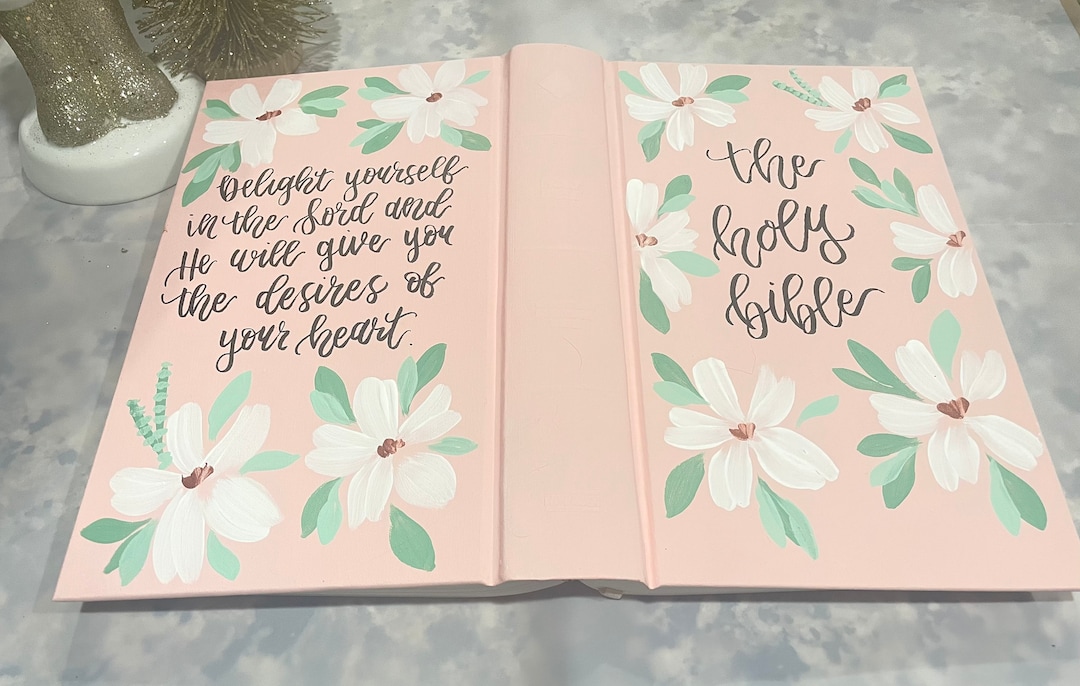 Delight yourself
in the Lord and
He will give you
the desires of
your heart.
the
holy
bible